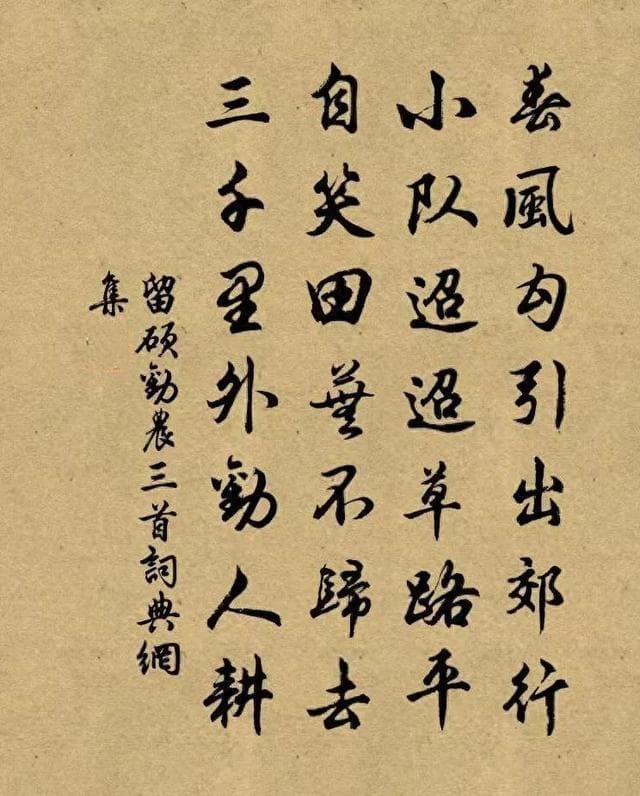 春風勾引出郊行
小队迢迢草路平
自笑田蕪不歸去
三千里外勸人耕
留硕勸農三首詞典網
集